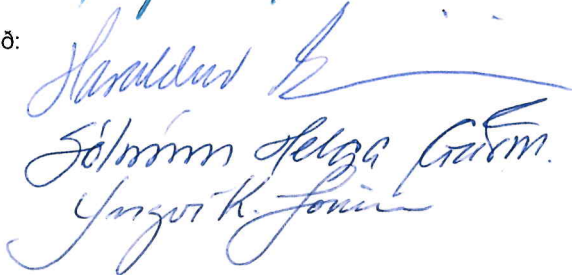 ð:
Haraldur
Sólrúnn Helga Guðm.
Yngvi K. Jónsson